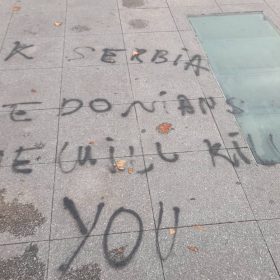 K SERBIA
EDONIANS
E WILL KILL
YOU